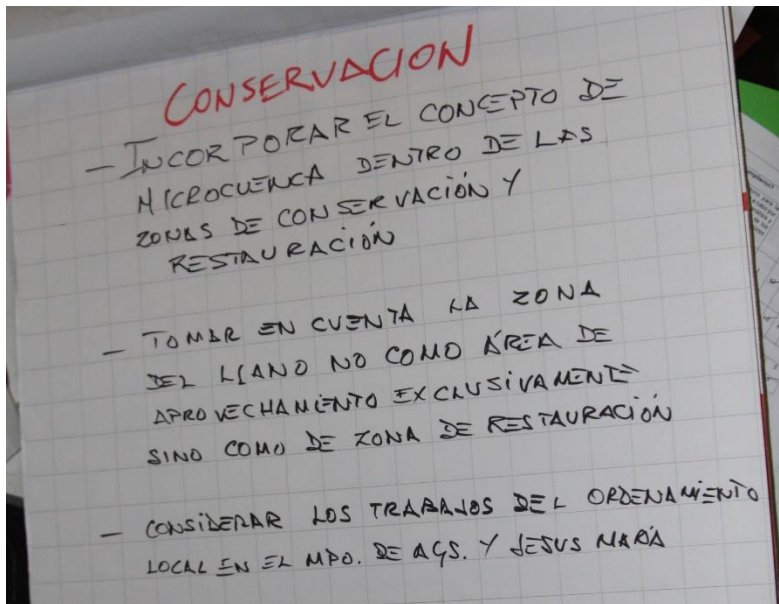 CONSERVACION
- INCORPORAR EL CONCEPTO DE
MICROCUENCA DENTRO DE LAS
ZONAS DE CONSERVACIÓN Y
RESTAURACIÓN
- TOMAR EN CUENTA LA ZONA
DEL LLANO NO COMO ÁREA DE
APROVECHAMIENTO EXCLUSIVAMENTE
SINO COMO DE ZONA DE RESTAURACIÓN
- CONSIDERAR LOS TRABAJOS DEL ORDENAMIENTO
LOCAL EN EL MPO. DE AGS. Y JESUS MARÍA